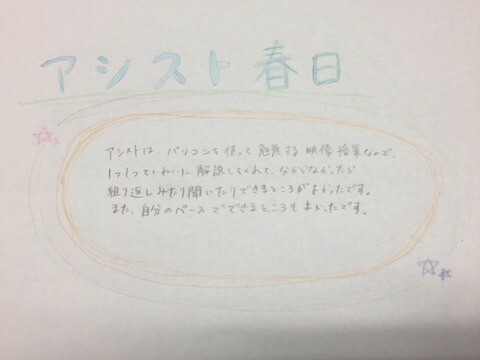 アシスト春日
アシストは、パソコンを使って勉強する映像授業なので、
1つ1つていねいに解説してくれて、わからなかったら
繰り返しみたり聞いたりできるところがよかったです。
また、自分のペースでできるところもよかったです。